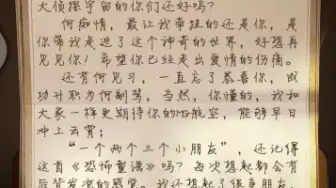 大侦探宇宙的你们还好吗？
何痴情，最让我牵挂的还是你，是
你带我走进了这个神奇的世界，好想再
见见你！希望你已经走出爱情的伤痛。
还有何见习，一直忘了恭喜你，成
功升职为何副驾，当然，你懂的，我和
大家一样更期待你的 航空，能够早日
冲上云霄；
“一个两个三个小朋友”，还记得
这首《恐怖童谣》吗？每次想起都会有
后背发凉的感觉。我还想起了很多朋友